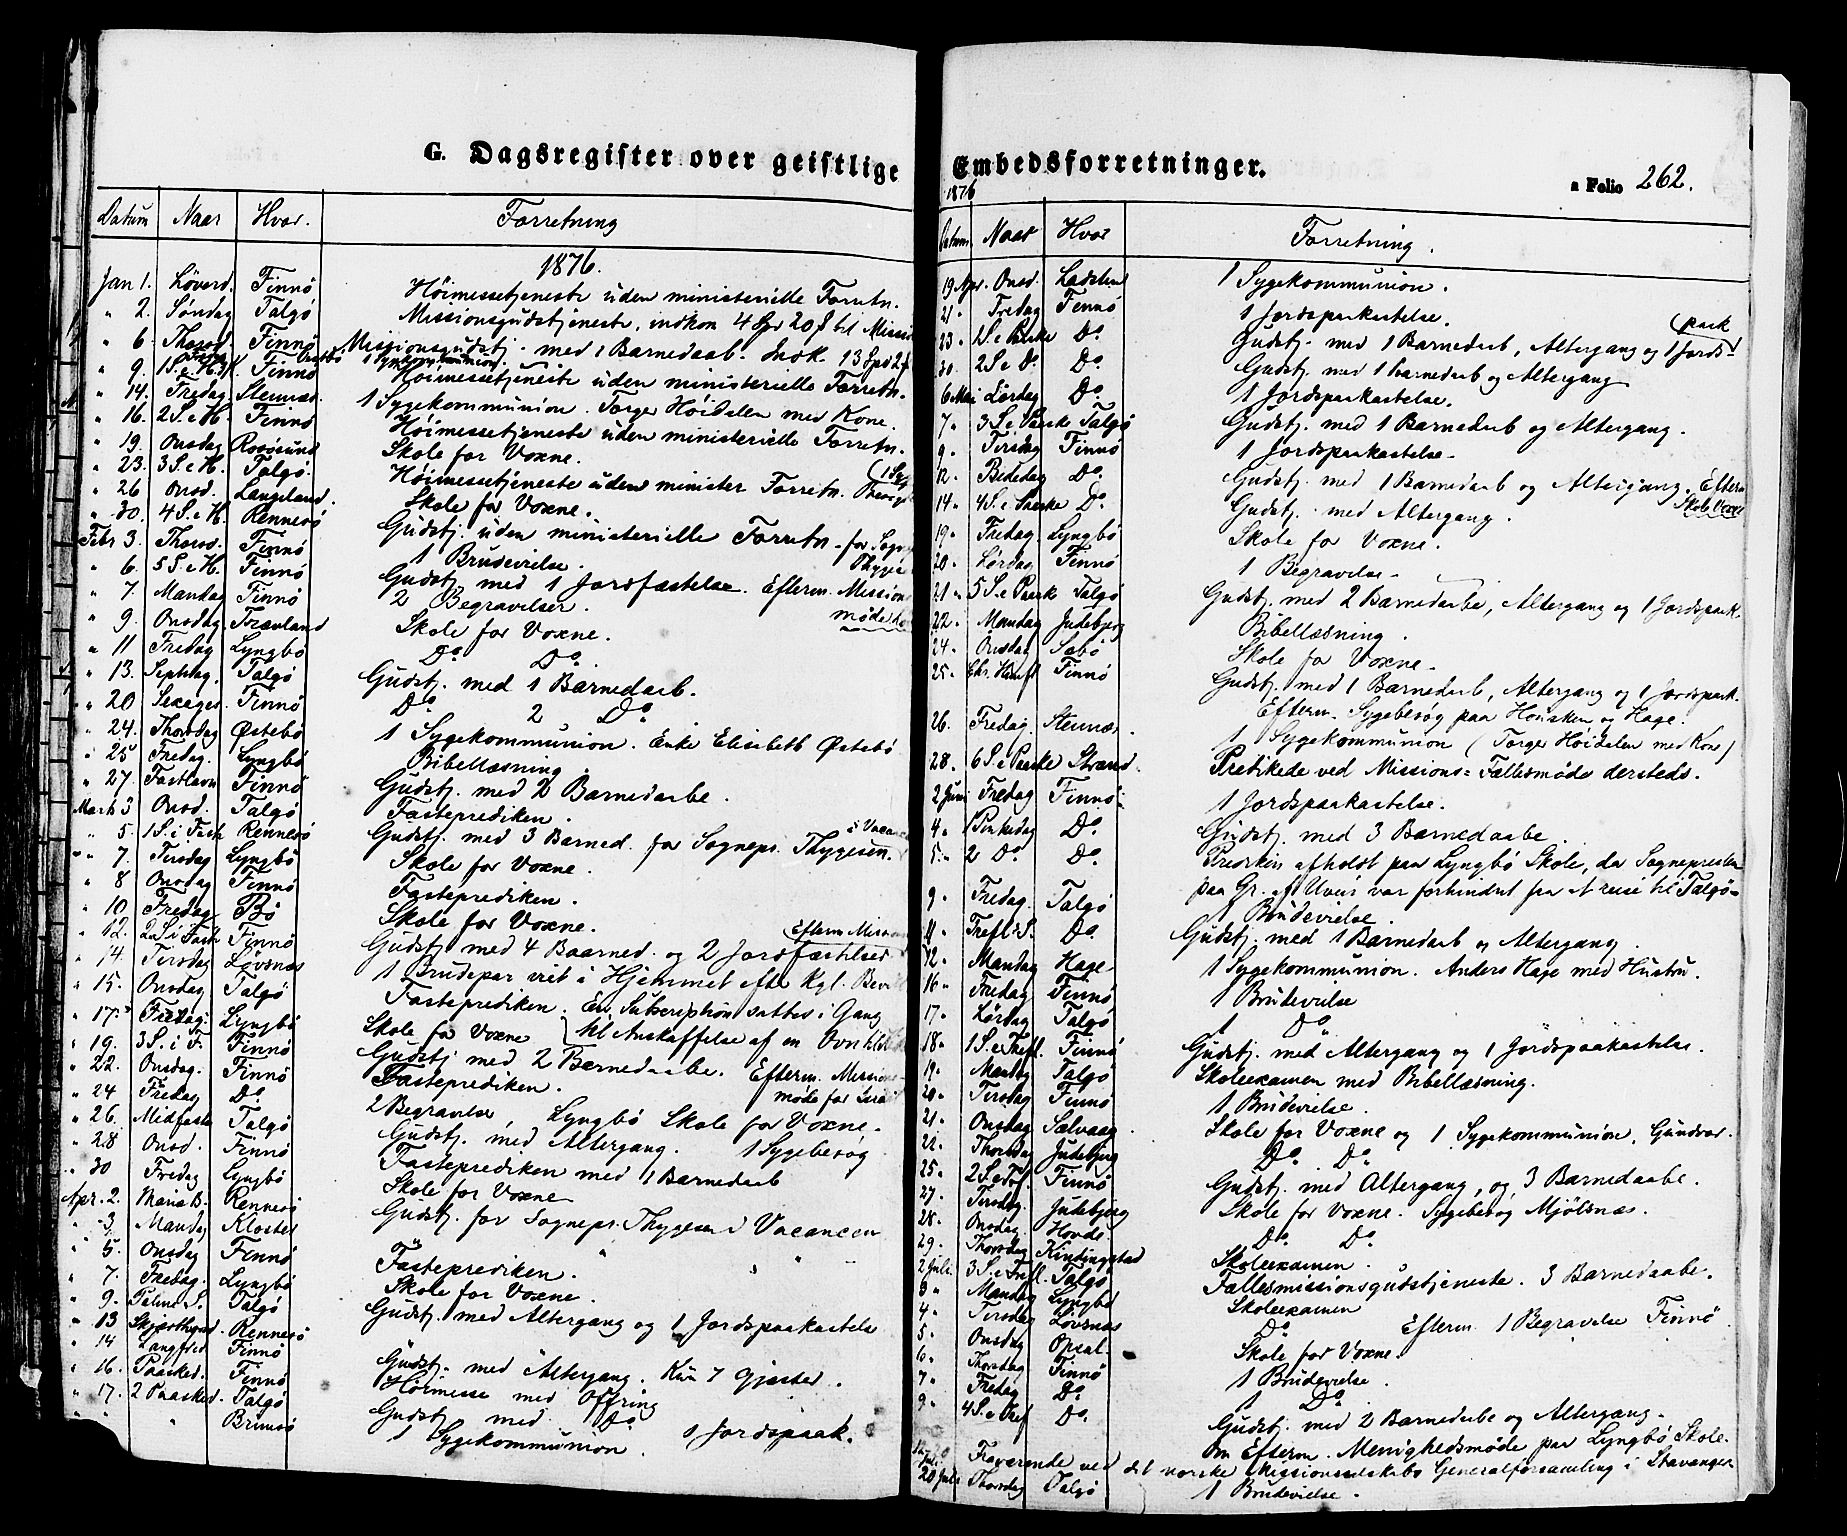 G. Dagsregister over geistlige
Datum Naar Hvor. Forretning
1876.
Jan 1. Löverd. Finnö Höimessetjeneste uden ministerielle Forretn.
" 2. Söndag Talgö Missionsgudstjeneste, indkom 4 Spr 20 ſ til Missi
" 6. Thorsd. Finnö Missionsgudstj. med 1 Barnedaab. Indk. 13 Spd 2
" 9. 1 S. e. H. 3 K. Finnö 1 Sygekommunion. Höimessetjeneste uden ministerielle Forretn.
" 14. Fredag Stennæs. 1 Sygekommunion. Torger Höidalen med Kone.
" 16. 2 S. e H. Finnö Höimessetjeneste uden ministerielle Forretn.
" 19. Onsdag Rosösund Skole for Voxne.
" 23. 3 S. e H. Talgö. Höimessetjeneste uden minister Forretn.
" 26 Onsd. Langeland. Skole for Voxne.
" 30. 4 S. e H. Rennesö Gudstj. uden ministerielle Forretn. for Sogn
Febr 3. Thorsd. Finnö 1 Brudevielse. Thyges
" 6. 5 S. e H. Finnö Gudstj. med 1 Jordfæstelse. Efterm. Mission
" 7. Mandag Finnö 2 Begravelser. möde
" 9. Onsdag Torævland Skole for Voxne.
" 11 Fredag Lyngbö Do Do
" 13. Septuag. Talgö Gudstj. med 1 Barnedaab.
" 20 Sexages. Finnö Do 2 Do
" 24. Thorsdag Östebö 1 Sygekommunion. Enke Elisabeth Östebö
" 25 Fredag. Lyngbö Bibellæsning
" 27 Fastlavn Finnö Gudstj. med 2 Barnedaabe.
Marts 3. Onsd. Talgö Fasteprediken.
" 5. 1 S. i Fast Rennesö Gudstj. med 3 Barned. for Sognepr. Thygesen i Vacanc
" 7. Tirsdag Lyngbö Skole for Voxne.
" 8 Onsdag Finnö Fasteprediken.
" 10 Fredag Bö Skole for Voxne.
" 12. 2 S. i Fast Finnö Gudstj. med 4 Baarned. og 2 Jordfæstelser Efterm Miss
" 14. Tirsdag Lövsnæs 1 Brudepar viet i Hjemmet efter Kgl. Bevill
" 15. Onsdag Talgö Fasteprediken. En Subscription sattes i Gang
" 17. Fredag. Lyngbö Skole for Voxne til Anskaffelse af en Ovn til
" 19. 3 S. i F. Finnö Gudstj med 2 Barnedaabe. Efterm. Missions
" 22. Onsdag. Finnö Fasteprediken. möde for Isra
" 24 Fredag Do 2 Begravelser Lyngbö Skole for Voxne.
" 26. Midfaste Talgö Gudstj. med Altergang. 1 Sygebesög
" 28 Onsd. Finnö Fasteprediken med 1 Barnedaab
" 30 Fredag Lyngbö Skole for Voxne
Apr. 2. Maria B. Rennesö Gudstj. for Sognepr. Thygesen i Vacancen
" 3. Mandag Kloster " " "
" 5. Onsdag Finnö Fasteprediken.
" 7. Fredag. Lyngbö Skole for Voxne.
" 9. Palme S. Talgö Gudstj. med Altergang og 1 Jordspaakastelse
" 13 Skjærthorsd. Rennesö
" 14 Langfred Finnö Gudstj. med Altergang. Kun 7 Gjester.
" 16. Paasked. Finnö Höimesse med Offring
" 17. 2 Paasked. Talgö Gudstj. med Do 1 Jordspaak.
" " Brimsö 1 Sygekommunion.
Embedsforretninger.
a Folio 262.
1876
Datum Naar Hvor Forretning.
19 Apr. Onsd. Ladsten 1 Sygekommunion.
21 " Fredag Finnö 1 Jordspaakastelse.
23 " 1 S. e Paske Do. Gudstj. med 1 Barnedaab, Altergang og 1 Jords- paak
30. 2 S. e Do. Do. Gudstj med 1 barnedaab og Altergang
6 Mai Lördag Do. 1 Jordspaakastelse.
7 " 3 S. e Paaske Talgö Gudstj. med 1 Barnedaab og Altergang.
9 " Tirsdag Finnö 1 Jordspaakastelse.
12. Bededag Do. Gudstj. med 1 Barnedaab og Altergang. Efterm
14 " 4 S. e. Paaske Do. Gudstj. med Altergang. Skole Voxne
19 " Fredag Lyngbö Skole for Voxne.
20. Lördag Finnö 1 Begravelse.
21 " 5 S. e Paask Talgö Gudstj. med 2 Barnedaabe, Altergang og 1 Jordspaak.
22. Mandag Judebjerg Bibellæsning.
24. Onsdag Sæbö Skole for Voxne.
25. Chr. Himfl. Finnö Gudstj. med 1 Barnedaab, Altergang og 1 Jordspaak.
Efterm. Sygebesög paa Housken og Hage.
26. Fredag. Stennæs. 1 Sygekommunion (Torger Höidalen med Kone)
28. 6 S. e Paaske Strand. Predikede ved Missions-Fællesmöde dersteds.
2 Juni Fredag Finnö 1 Jordspaakastelse.
4 " 1 Pintsedag Do. Gudstj. med 3 Barnedaabe.
5. 2 Do. Do. afholdt paa Lyngbö Skole, da Sognepresten
paa Gr. af Uveir var forhindret fra at reise til Talgö.
9. Fredag. Talgö 1 Brudevielse.
11. Trefl. S. Do. Gudstj. med 1 Barnedaab og Altergang.
12. Mandag Hage 1 Sygekommunion. Anders Hage med Hustru.
16. Fredag Finnö 1 Brudevielse
17. Lördag Talgö 1 Do
18. 1 S. e Trefl. Finnö Gudstj. med Altergang og 1 Jordspaakastelse.
19. Mandag Talgö Skoleexamen med Bibellæsning.
20. Tirsdag Finnö 1 Brudevielse.
21. Onsdag Sælvaag. Skole for Voxne og 1 Sygekommunion, Gundvor.
22. Thorsdag Judebjerg Do Do
25. 2 S. e Tref. Finnö Gudstj. med Altergang, og 3 Barnedaabe.
27. Tirsdag. Judebjerg Skole for Voxne. Sygebesög Mjölsnæs.
28. Onsdag. Hovde Do Do
29. Thorsdag Kindingstad Skoleexamen.
2 Juli. 3 S. e Trefl. Talgö Fællesmissionsgudstjeneste. 3 Barnedaabe.
3 " Mandag Lyngbö Skoleexamen
4. Tirsdag Lövsnæs Do Efterm 1 Begravelse Finnö
5. Onsdag Opsal. Skole for Voxne.
6. Thorsdag Finnö 1 Brudevielse.
7. Fredag Do 1 Do.
9. 4 S. e Tref Do. Gudstj. med 2 Barnedaabe og Altergang.
Om Efterm. Menighedsmöde paa Lyngbö Skole.
Juli. Fraværende ved det norske Missionsselskabs Generalforsamling i Stavanger
20 Juli Thorsdag Talgö 1 Brudevielse.